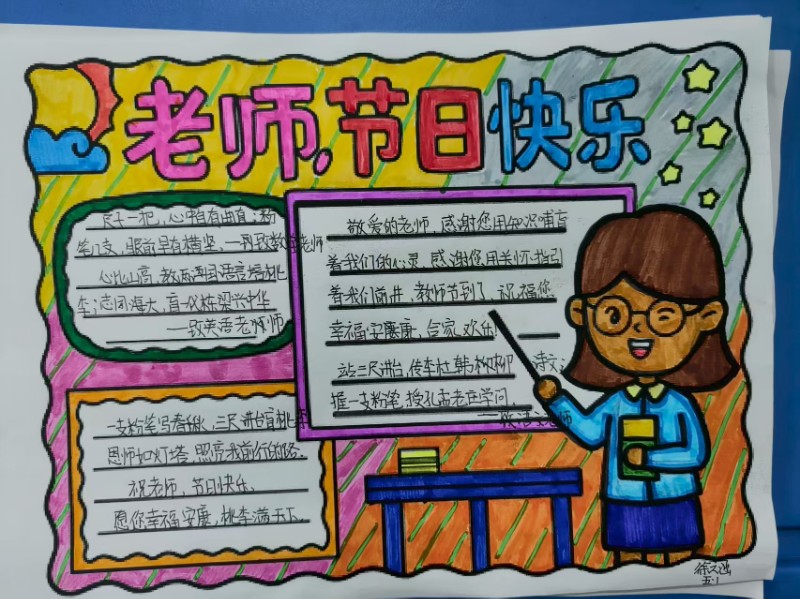 老师,节日快乐
尺子一把,心中自有曲直;粉
笔几支,眼前早有横竖,—致数学老师
心比山高,教两国语言培桃
李;志同海大,育一代栋梁兴中华
——致英语老师
敬爱的老师,感谢您用知识哺育
着我们的心灵,感谢您用关怀指引
着我们前进,教师节到了,祝福您
幸福安康,合家欢乐!
站三尺讲台,传李杜韩柳诗文;
握一支粉笔,授孔孟老庄学问,
——致语文老师
一支粉笔写春秋,三尺讲台育桃李
恩师如灯塔,照亮我前行的路。
祝老师,节日快乐,
愿你幸福安康,桃李满天下。
五·1